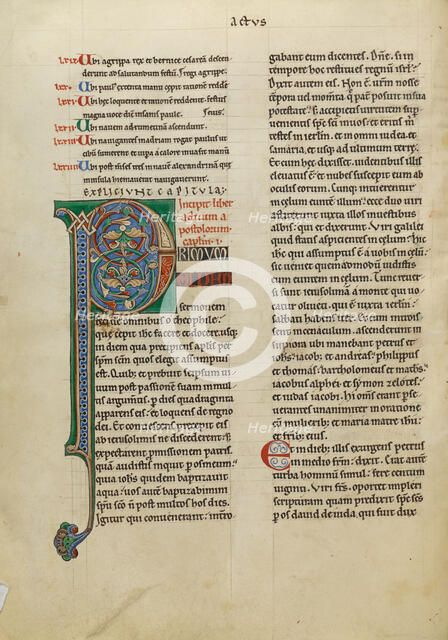 actus
lxix Ubi agrippa rex et bernice cesaream descen
derunt ad salutandum festū.
lxx. Ubi paulꝰ extenta manu cepit rationē redde
Ubi hec loquente et rationē reddente: festus
magna voce dixit insanis paule.
Ubi navem adrumetinā ascendunt.
Ubi navigantes madriam rogat paulus ut
cibū sumerent et
Ubi post menses tres in navē alexandrina que
insula hiemaverat navigaverunt.
EXPLICIUNT CAPITULA;
Incipit liber
actuum a
postolorum
captm̄. i.
PRIMUM
sermonem
feci de omnibus o theophile.
que cepit ihc̄ facere et docere. usq;
in diem qua precipiens aplis per
spm̄ scm̄ quos elegit assumptus
est. Quib; et prebuit seipsum ui
uum post passionē suam in multis
argumtis. p dies quadraginta
apparens eis. et loquens de regno
dei. Et convescens precepit eis
ab ierosolimis ne discederent. s;
expectarent pmissionem patris.
quā audistis inquit p os meum.
quia iohs̄ quidem baptizavit
aqua: uos autē baptizabimini
spū scō n̄ post multos hos dies.
Igitur qui convenerant. intro
gabant eum dicentes. Dn̄e. si in
tempore hoc restitues regnū isrl̄.
Dixit autem eis. Non ē urm̄ nosse
tēpora uel momta. que pat̄ posuit in sua
potestate. s; accipietis uirtutem sup
uenientis spc̄ sc̄i in uos. et eritis m̄
testes in ierlm̄. et in omni iudea et
samaria. et usq; ad ultimum terre.
Et cum hec dixisset. uidentibus illis
elevatus est. et nubes suscepit eum ab
oculis eorum. Cunq; intuerentur
in celum euntem illum: ecce duo uiri
astiterunt iuxta illos in uestibus
albis. qui et dixerunt. Viri galilei
quid statis aspicientes in celum: hic
ihc̄ qui assumptus ē a uobis in celum
sic veniet quemadmodum uidistis
eum euntem in celum. Tunc rever
si sunt ierosolimā a monte qui uo
catur oliveti. qui ē iuxta ierlm̄.
sabbati habens iter. Et cum introis
sent in cenaculum. ascenderunt in
superiora. ubi manebant petrus et
iohs̄. iacob; et andreas. philippus
et thomas. bartholomeus et mathꝰ.
iacobus alphei et symon zelotes.
et iudas iacobi. Hi om̄s erant pse
verantes unanimiter in oratione
cū mulierib; et maria matre ihū et
et frib; eius.
In dieb; illis exurgens petrus
in medio frm̄. dixit. Erat autē
turba hominū simul. fere centum
uiginti. Viri frs̄. oportet impleri
scripturam quam predixit spc̄ sc̄s
p os david de iuda. qui fuit dux
Heritage